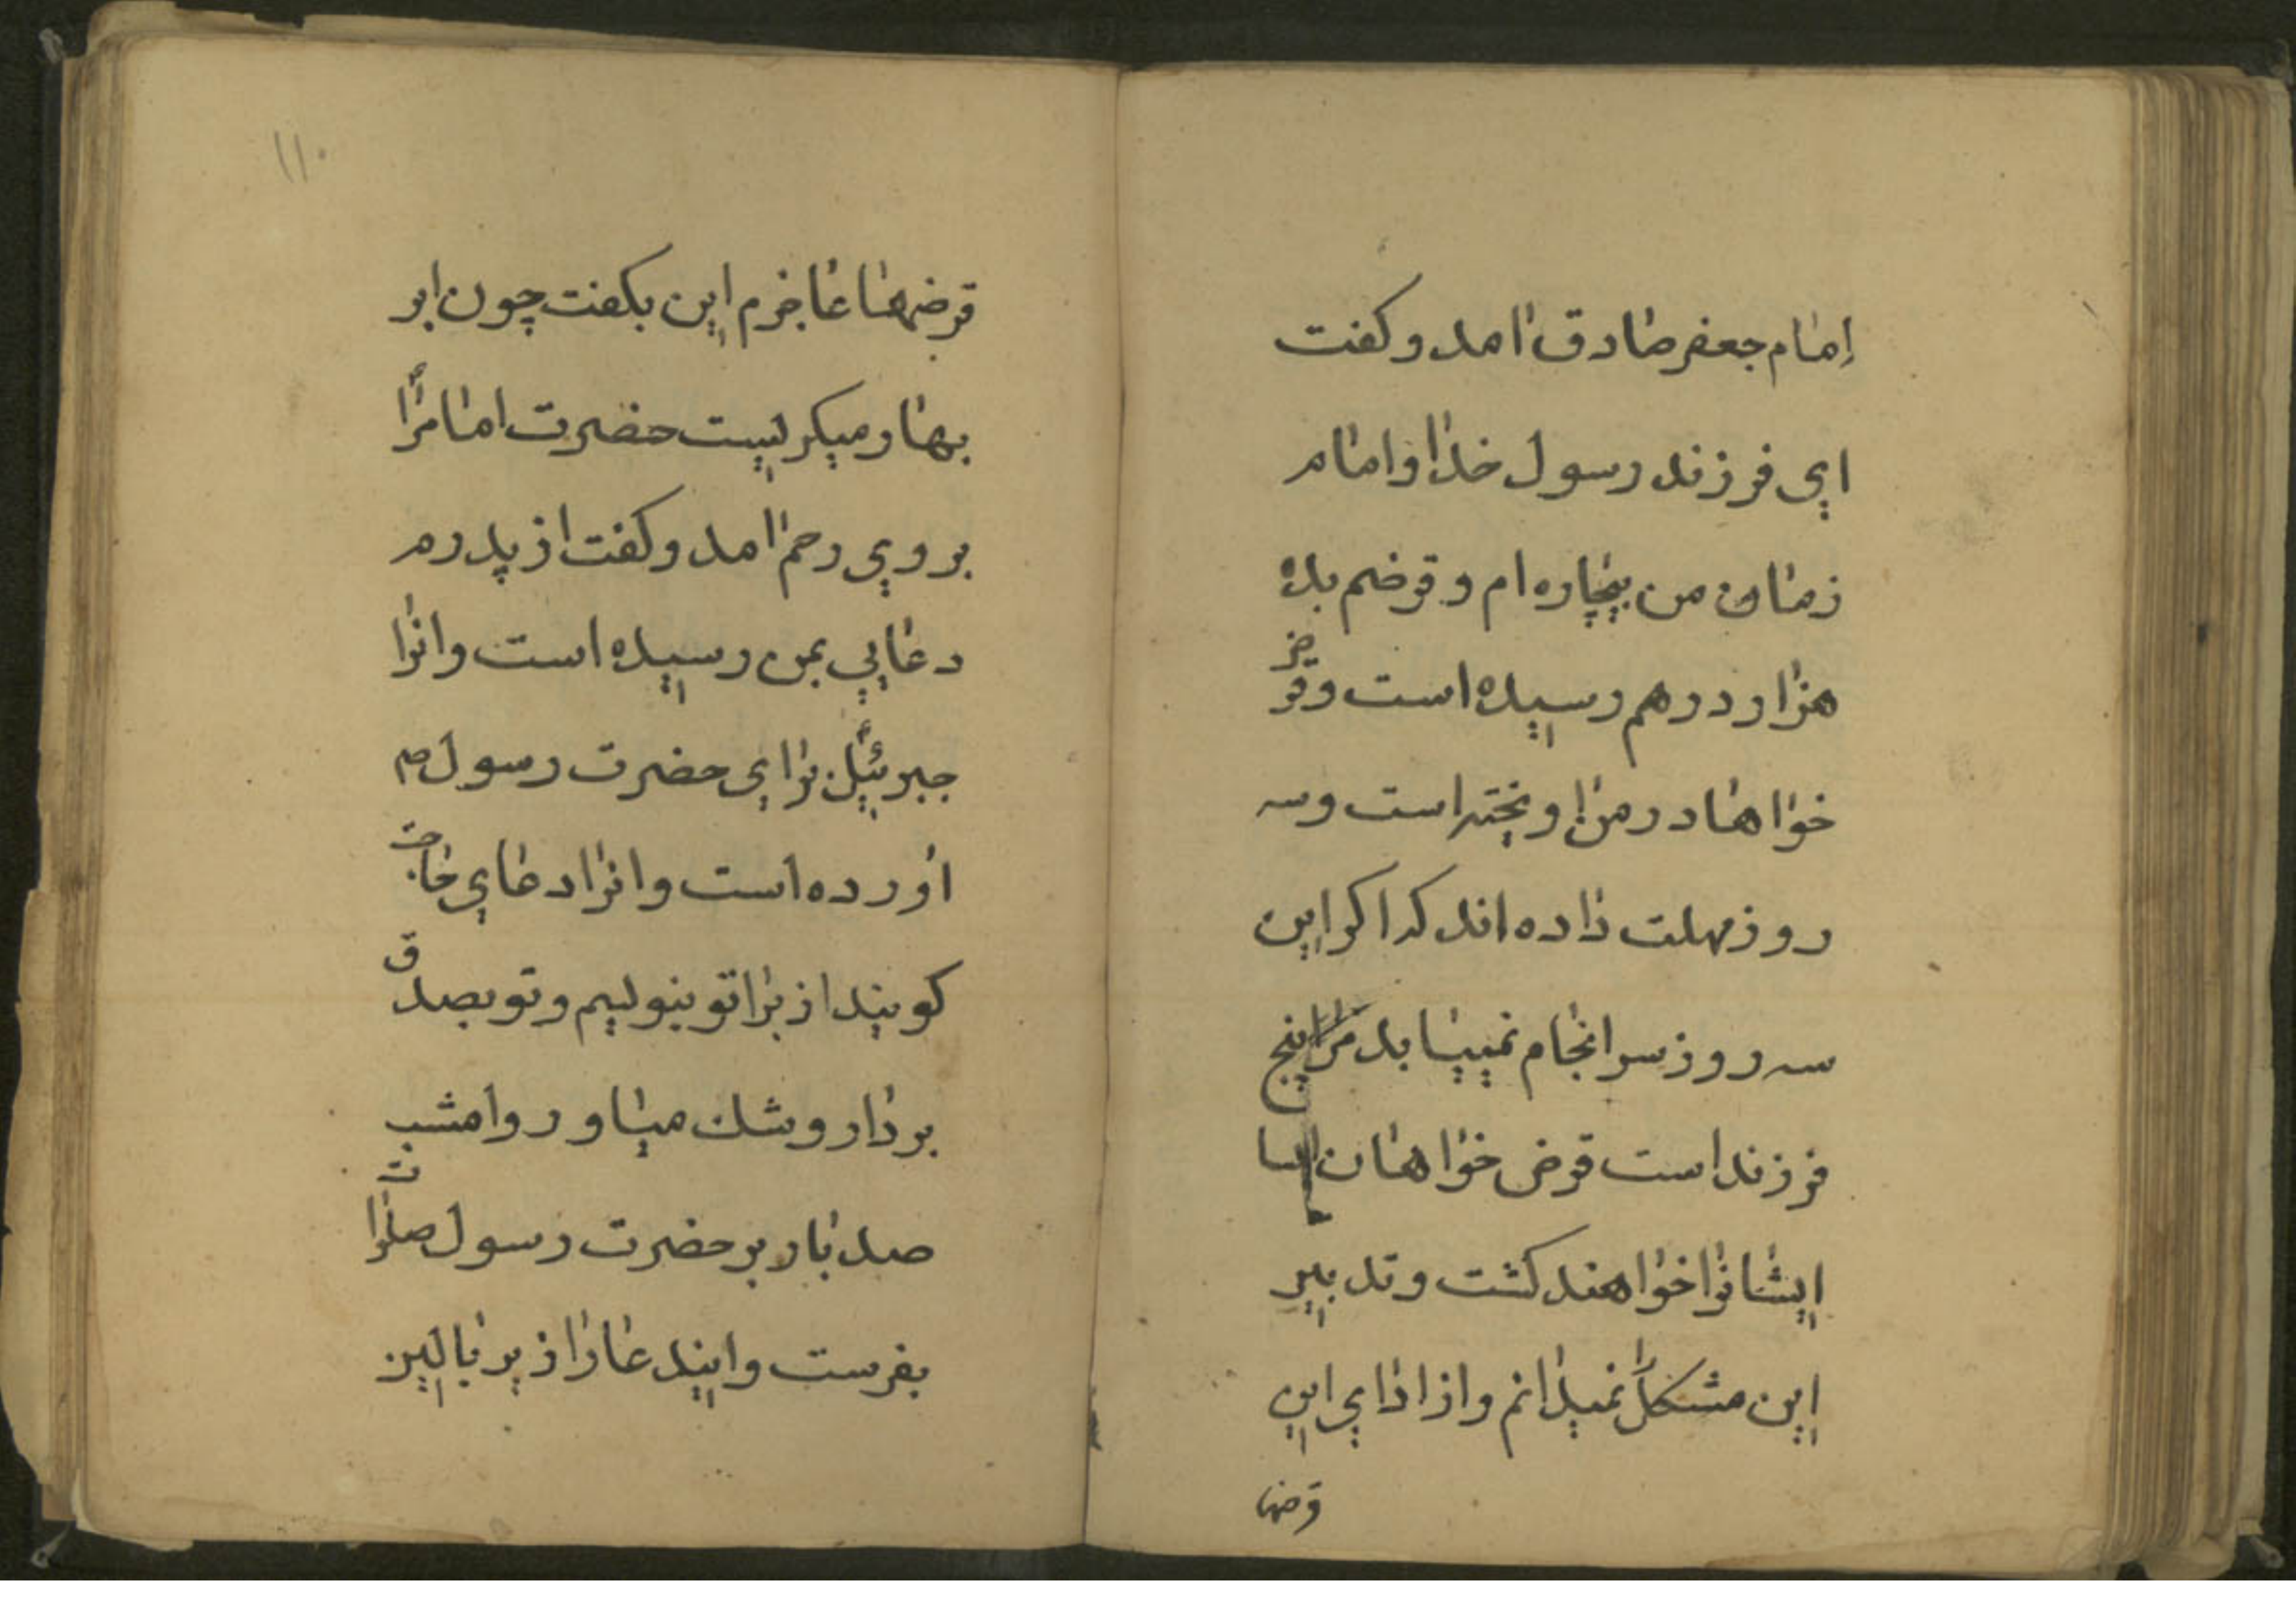 امام جعفر صادق امد و کفت
ای فرزند رسول خدا و امام
زمان من بیچاره ام و قرضم بده
هزار درهم رسیده است و قرض
خواها در من اویخته است و سه
روز مهلت داده اند که اکر این
سه روز سرانجام نمییابد مرا پنج
فرزند است قرض خواهان
ایشانرا خواهند کشت و تدبیر
این مشکل را نمیدانم و از ادای این
قرضها
۱۱۰
قرضها عاجزم این بکفت چون ابر
بهار میکریست حضرت امام را
بروی رحم امد و کفت از پدرم
دعایی بمن رسیده است و انرا
جبرئیل برای حضرت رسول ص
اورده است و انرا دعای حاجت
کویند از برا تو بنویسم و تو بصدق
بردار و شک میاور و امشب
صد بار بر حضرت رسول صلوات
بفرست و ایندعارا زیر بالین